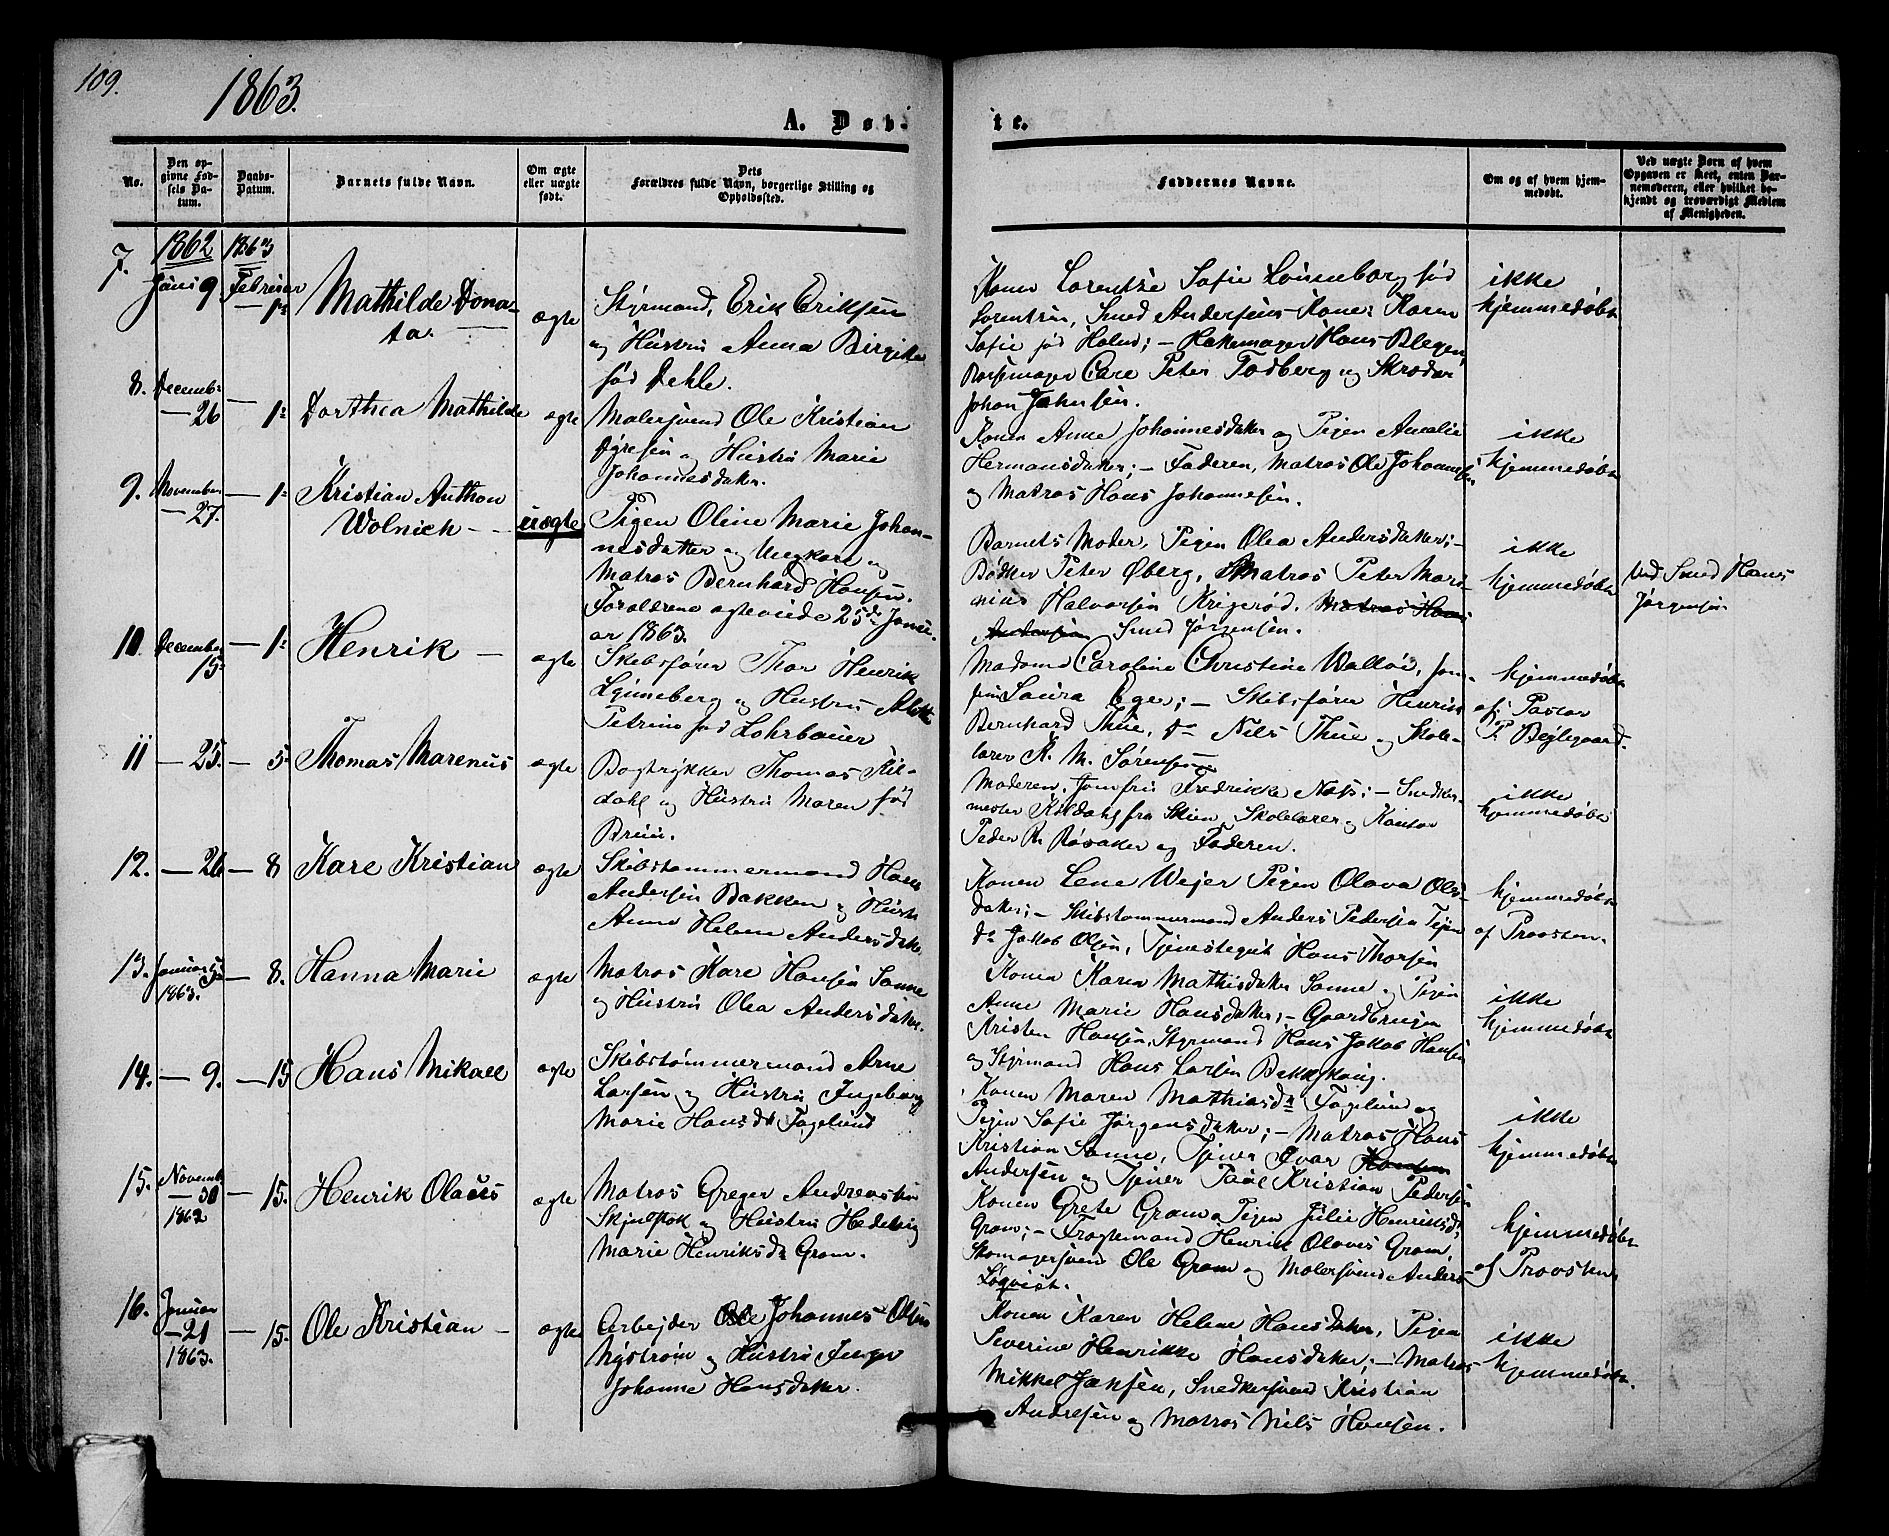 109.
1863.
A. Døb-
te.
No.
Den op-
givne Fød-
sels Da-
tum.
Daabs-
Datum.
Barnets fulde Navn.
Om ægte
eller uægte
født.
Dets
Forældres fulde Navn, borgerlige Stilling og
Opholdssted.
Faddernes Navne.
Om og af hvem hjem-
medøbt.
Ved uægte Born af hvem
Opgaven er skeet, enten Bar-
nemoderen, eller hvilket be-
kjendt og troværdigt Medlem
af Menigheden.
7.
1862
Juni 9
1863
Februar
— 1ste
Mathilde Dona-
ta.
ægte
Styrmand, Erik Eriksen
og Hustru Anna Birgitte
fød Dehle.
Konen Lorentze Sofie født
Lorentsen, Smed Andersens Kone Karen
Sofie fød Holm; — Hans Blegen,
Carl Peter Fodberg og Skræder
Johan Jahnsen.
ikke
hjemmedøbt
8.
Decemb:
— 26
— 1ste
Dorthea Mathilde
ægte
Malersvend Ole Kristian
og Hustru Marie
Johannesdatter.
Konen Anne Johannesdatter og Pigen Amalie
Hermansdatter; — Faderen, Matros Ole Johannesen
og Matros Hans Johannesen.
ikke
hjemmedøbt
9.
November
— 27.
— 1ste
Kristian Anthon
Wolnick —
uægte
Pigen Oline Marie Johan-
nesdatter og Ungkarl og
Matros Bernhard Hansen.
Forældrene ægteviede 25de Janu-
ar 1863.
Barnets Moder, Pigen Olea Andersdatter; —
Bødker Peter Øberg, Matros Peter Mari-
nius Halvorsen Krigerød. Matros Hans
Andersen Smed Jørgensen.
ikke
hjemmedøbt
Ved Smed Hans
Jørgensen
10
December
15de
— 1ste
Henrik —
ægte
Skibsfører Thor Henrik
Lynneberg og Hustru Alette
Petrine fød Lohrbauer
Madame Caroline Christine Walløe, Jom-
fru Laura Eger; — Skibsfører Henrik
Bernhard Thue, do Nils Thue og Skole-
lærer K. M. Sørensen
hjemmedøbt
af Pastor
P. Bejlegaard.
11
— 25.
— 5
Thomas Marenus
ægte
Bogtrykker Thomas Kil-
dahl og Hustru Maren fød
Bruun.
Moderen, Jomfru Fredrikke Næs; — Snedker-
mester Kildahl fra Skien, Skolelærer og Kantor
Peder R. Røsaker og Faderen.
ikke
hjemmedøbt
12.
— 26
— 8
Karl Kristian
ægte
Skibstømmermand Hans
Andersen Bakken og Hustr.
Anne Helene Andersdatter
Konen Lene Wejer Pigen Olava Ols-
datter; — Skibstømmermand Anders Pedersen Tejen
do Jakob Olsen, Tjenestegut Hans Thorsen
hjemmedøbt
af Provsten.
13.
Januar 5
1863.
— 8.
Hanna Marie
ægte
Matros Karl Hansen Sanne
og Hustru Olea Andersdatter.
Konen Karen Mathisdatter Sanne og Pigen
Anne Marie Hansdatter; — Gaardbruger
Kristen Hansen, Styrmand Hans Jakob Hansen
og Styrmand Hans Larsen Bakkehaug.
ikke
hjemmedøbt
14.
— 9.
— 15
Hans Mikael
ægte
Skibstømmermand Arne
Larsen og Hustru Ingeborg
Marie Hansdt Fagelund
Konen Maren Mathiasdr Fagelund og
Pigen Sofie Jørgensdatter; — Matros Hans
Kristian Sanne, Tjener Ivar Hansen
Andersen og Tjener Paul Kristian Pedersen
ikke
hjemmedøbt
15.
Novemb
— 30
1862
— 15.
Henrik Olaus
ægte
Matros Greger Andreassen
Skjulstok og Hustru Hedevig
Marie Henriksdr Gram.
Konen Grete Gram og Pigen Julie Henriksdr
Gram; — Fragtemand Henrik Olaves Gram,
Skomagersvend Ole Gram og Malersvend Anders
Løqvist.
hjemmedøbt
af Provsten
16.
Januar
— 21
1863.
— 15.
Ole Kristian —
ægte
Arbejder Ole Johannes Olsen
Nystrøm og Hustru Inger
Johanne Hansdatter.
Konen Karen Helene Hansdatter, Pigen
Severine Henrikke Hansdatter; — Matros
Mikkel Jansen, Snedkersvend Kristian
Andresen og Matros Nils Hansen.
ikke
hjemmedøbt.